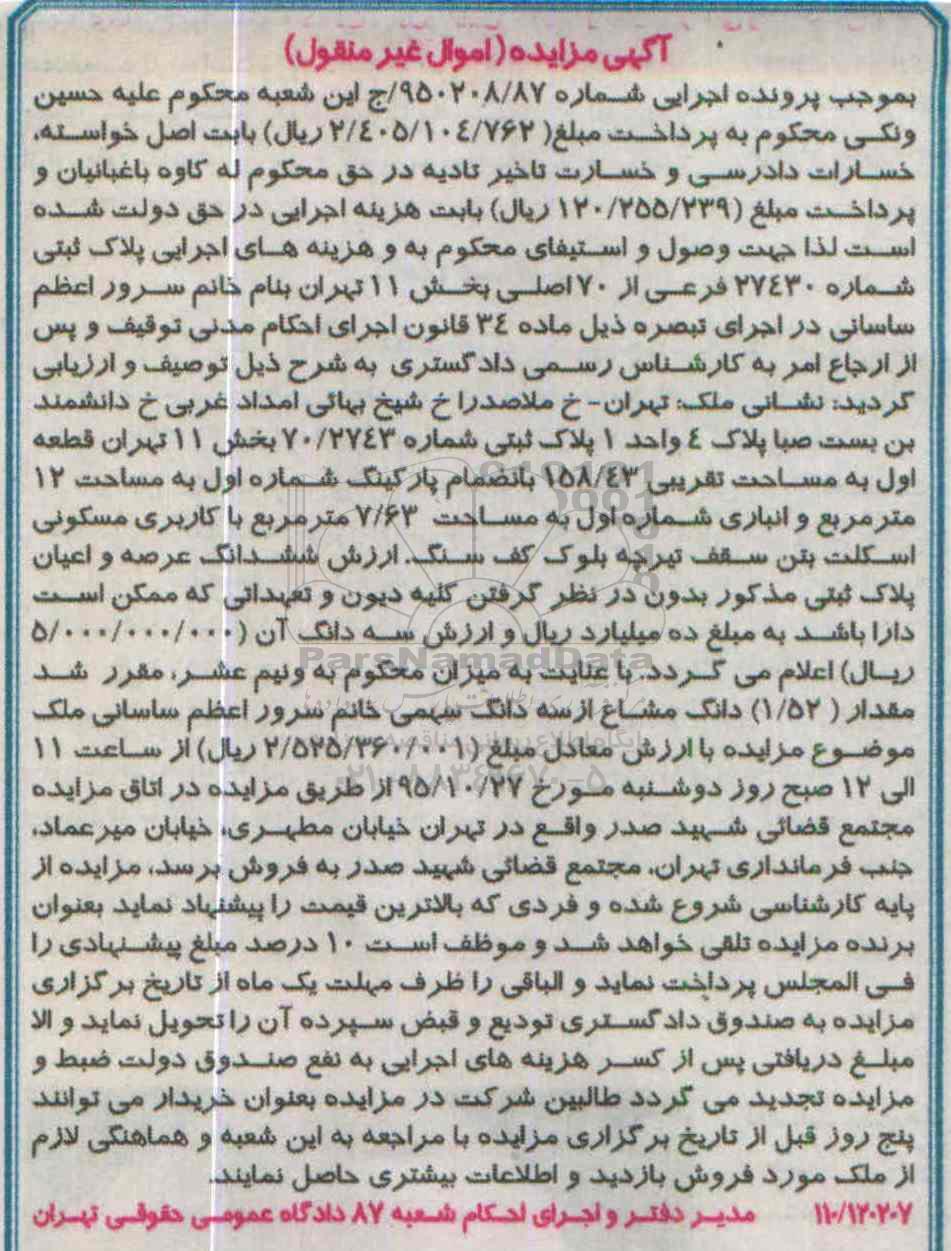 آگهی مزایده (اموال غیر منقول)
بموجب پرونده اجرایی شماره ۹۵۰۲۰۸/۸۷/ج این شعبه محکوم علیه حسین
ونکی محکوم به پرداخت مبلغ( ۲/۴۰۵/۱۰۴/۷۶۲ ریال) بابت اصل خواسته،
خسارات دادرسی و خسارت تاخیر تادیه در حق محکوم له کاوه باغبانیان و
پرداخت مبلغ (۱۲۰/۲۵۵/۲۳۹ ریال) بابت هزینه اجرایی در حق دولت شده
است لذا جهت وصول و استیفای محکوم به و هزینه های اجرایی پلاک ثبتی
شماره ۲۷۴۳۰ فرعی از ۷۰ اصلی بخش ۱۱ تهران بنام خانم سرور اعظم
ساسانی در اجرای تبصره ذیل ماده ۳۴ قانون اجرای احکام مدنی توقیف و پس
از ارجاع امر به کارشناس رسمی دادگستری به شرح ذیل توصیف و ارزیابی
گردید: نشانی ملک: تهران- خ ملاصدرا خ شیخ بهائی امداد غربی خ دانشمند
بن بست صبا پلاک ۴ واحد ۱ پلاک ثبتی شماره ۷۰/۲۷۴۳ بخش ۱۱ تهران قطعه
اول به مساحت تقریبی ۱۵۸/۴۳ بانضمام پارکینگ شماره اول به مساحت ۱۲
متر مربع و انباری شماره اول به مساحت ۷/۶۳ متر مربع با کاربری مسکونی
اسکلت بتن سقف تیرچه بلوک کف سنگ. ارزش ششدانگ عرصه و اعیان
پلاک ثبتی مذکور بدون در نظر گرفتن کلیه دیون و تعهداتی که ممکن است
دارا باشد به مبلغ ده میلیارد ریال و ارزش سه دانگ آن (۵/۰۰۰/۰۰۰/۰۰۰
ParsNamadData
ریال) اعلام می گردد. با عنایت به میزان محکوم به ونیم عشر، مقرر شد
مقدار ( ۱/۵۲) دانگ مشاع از سه دانگ سهمی خانم سرور اعظم ساسانی ملک
موضوع مزایده با ارزش معادل مبلغ (۲/۵۲۵/۳۶۰/۰۰۱ ریال) از ساعت ۱۱
الی ۱۲ صبح روز دوشنبه مورخ ۹۵/۱۰/۲۷ از طریق مزایده در اتاق مزایده
مجتمع قضائی شهید صدر واقع در تهران خیابان مطهری، خیابان میرعماد،
جنب فرمانداری تهران، مجتمع قضائی شهید صدر به فروش برسد، مزایده از
پایه کارشناسی شروع شده و فردی که بالاترین قیمت را پیشنهاد نماید بعنوان
برنده مزایده تلقی خواهد شد و موظف است ۱۰ درصد مبلغ پیشنهادی را
فی المجلس پرداخت نماید و الباقی را ظرف مهلت یک ماه از تاریخ برگزاری
مزایده به صندوق دادگستری تودیع و قبض سپرده آن را تحویل نماید و الا
مبلغ دریافتی پس از کسر هزینه های اجرایی به نفع صندوق دولت ضبط و
مزایده تجدید می گردد طالبین شرکت در مزایده بعنوان خریدار می توانند
پنج روز قبل از تاریخ برگزاری مزایده با مراجعه به این شعبه و هماهنگی لازم
از ملک مورد فروش بازدید و اطلاعات بیشتری حاصل نمایند.
۱۱۰/۱۲۰۲۰۷ مدیر دفتر و اجرای احکام شعبه ۸۷ دادگاه عمومی حقوقی تهران